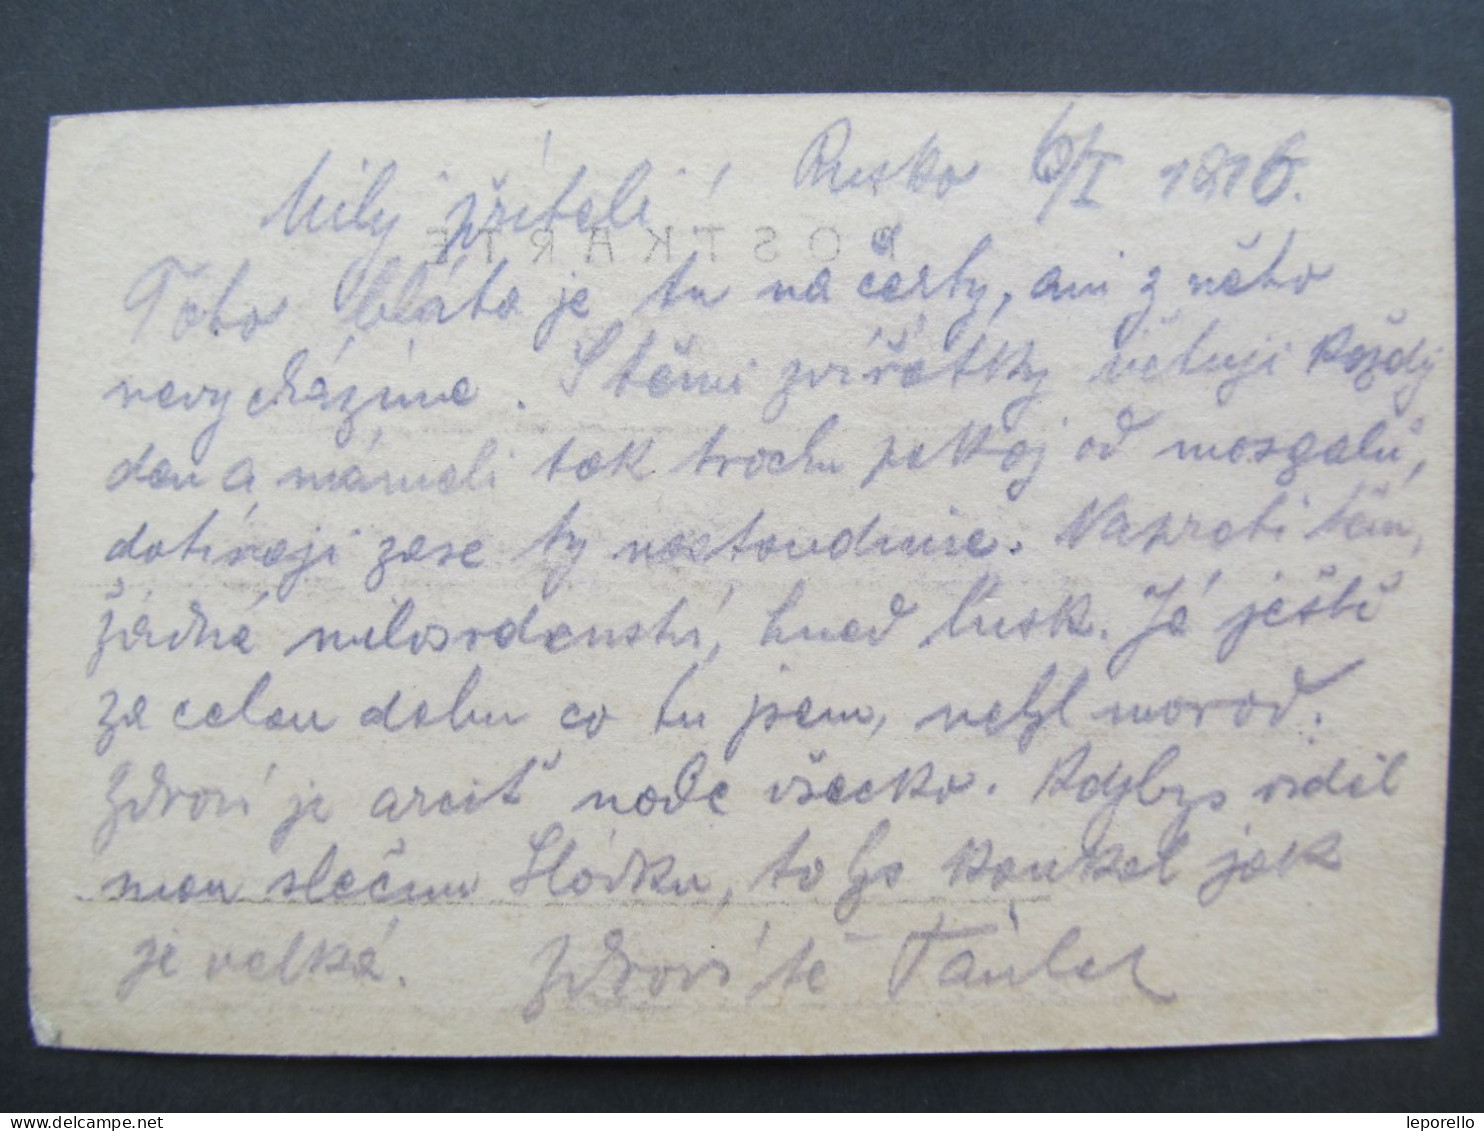 Rusko 6/I 1916.
Milý příteli!
POSTKARTE
Toho bláta je tu na čerty, ani z něho
nevycházíme. S těmi zvířátky válčuji každý
den a máme-li tak trochu pokoj od mosgalů,
dotírají zase ty nestoudnice. Naproti těm,
žádné milosrdenství, hned lusk. Já ještě
za celou dobu co tu jsem, nebyl marod.
Zdraví je arciť naše všecko. Kdybys viděl
mou slečnu Slávku, to bys koukal jak
je velká. Zdraví tě
leporello
www.delcampe.net